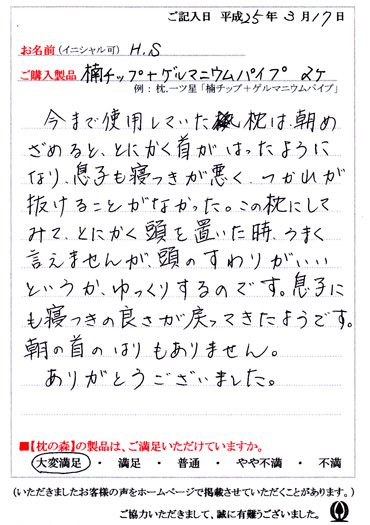 ご記入日 平成25年3月17日
お名前(イニシャル可) H.S
ご購入製品 楠チップ+ゲルマニウムパイプ 2ケ
例:枕.一ツ星「楠チップ+ゲルマニウムパイプ」
今まで使用していた枕は、朝め
ざめると、とにかく首がはったように
なり、息子も寝つきが悪く、つかれが
抜けることがなかった。この枕にして
みて、とにかく頭を置いた時、うまく
言えませんが、頭のすわりがいい
というか、ゆっくりするのです。息子に
も寝つきの良さが戻ってきたようです。
朝の首のはりもありません。
ありがとうございました。
■【枕の森】の製品は、ご満足いただけていますか。
大変満足 ・ 満足 ・ 普通 ・ やや不満 ・ 不満
(いただきましたお客様の声をホームページで掲載させていただくことがあります。)
ご協力いただきまして、誠に有難うございました。